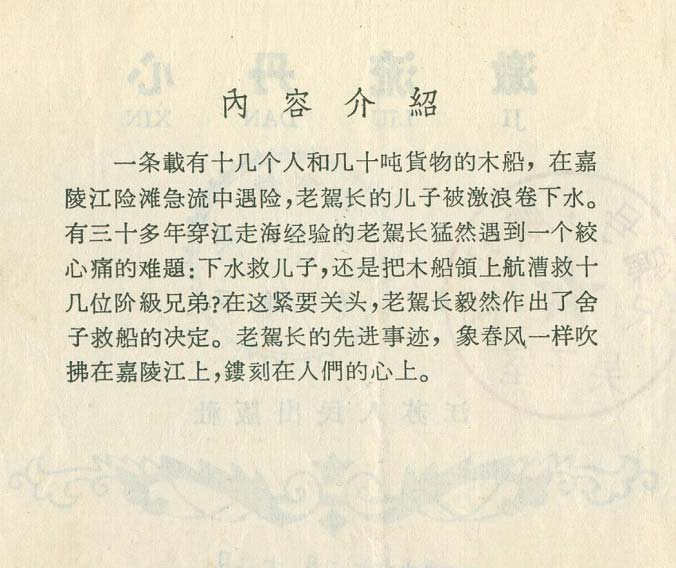 內容介紹
一条載有十几个人和几十吨貨物的木船，在嘉
陵江险滩急流中遇险，老駕长的儿子被激浪卷下水。
有三十多年穿江走海经验的老駕长猛然遇到一个絞
心痛的难題：下水救儿子，还是把木船領上航漕救十
几位阶級兄弟？在这紧要关头，老駕长毅然作出了舍
子救船的决定。老駕长的先进事迹，象春风一样吹
拂在嘉陵江上，鏤刻在人們的心上。
激流丹心
JI LIU DAN XIN
江苏人民出版社